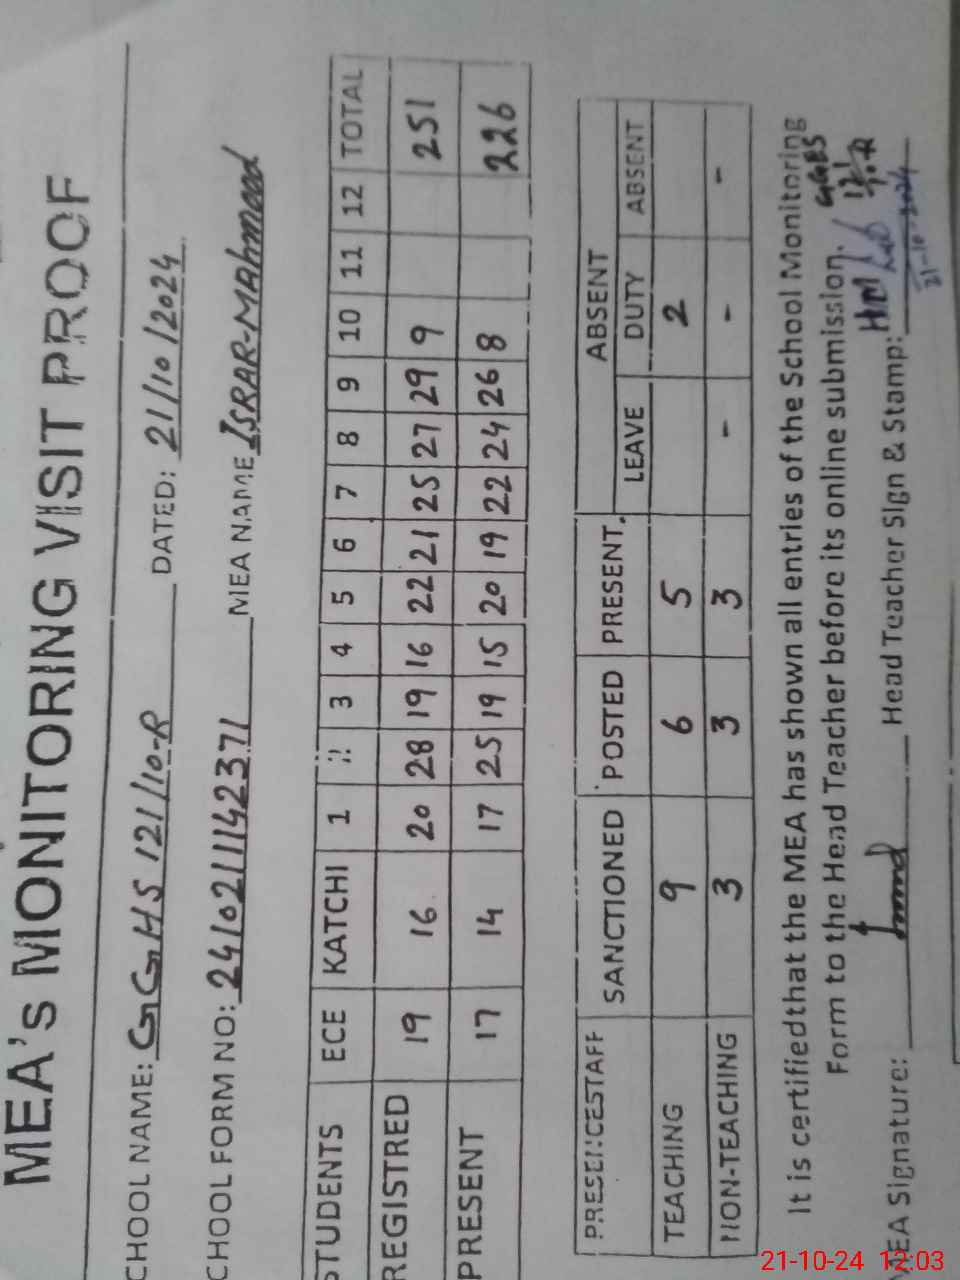 MEA's MONITORING VISIT PROOF
CHOOL NAME: GGHS 121/10-R DATED: 21/10/2024
CHOOL FORM NO: 2410211142371 MEA NAME ISRAR-MAHmood
STUDENTS ECE KATCHI 1 2 3 4 5 6 7 8 9 10 11 12 TOTAL
REGISTRED 19 16 20 28 19 16 22 21 25 27 29 9 251
PRESENT 17 14 17 25 19 15 20 19 22 24 26 8 226
PRESENCESTAFF SANCTIONED POSTED PRESENT. ABSENT
LEAVE DUTY ABSENT
TEACHING 9 6 5 2
NON-TEACHING 3 3 3 - - -
It is certifiedthat the MEA has shown all entries of the School Monitoring
Form to the Head Teacher before its online submission.
MEA Signature: Head Teacher Sign & Stamp: HM
21-10-2024
21-10-24 12:03